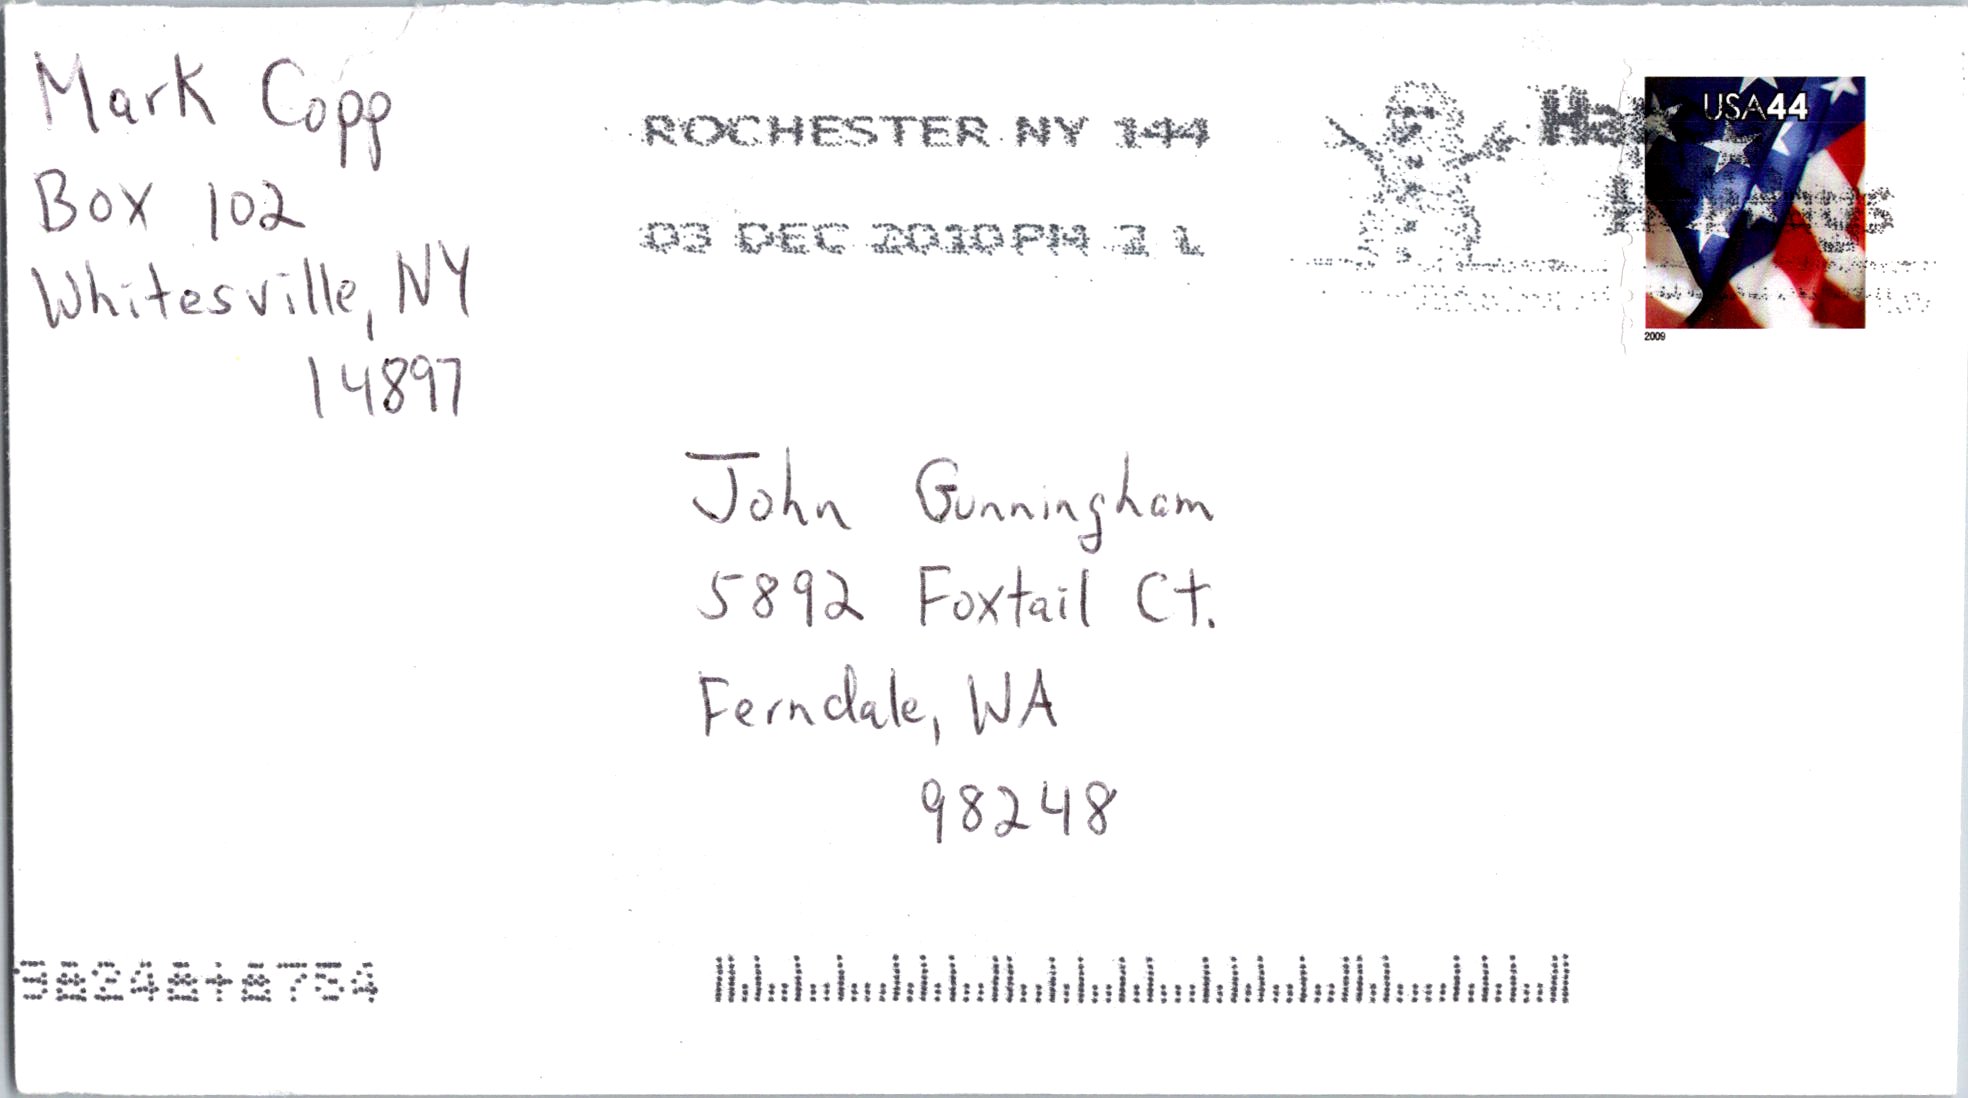 Mark Copp
Box 102
Whitesville, NY
14897
ROCHESTER NY 144
03 DEC 2010 PM 1 L
USA44
2009
John Gunningham
5892 Foxtail Ct.
Ferndale, WA
98248
98248+8754